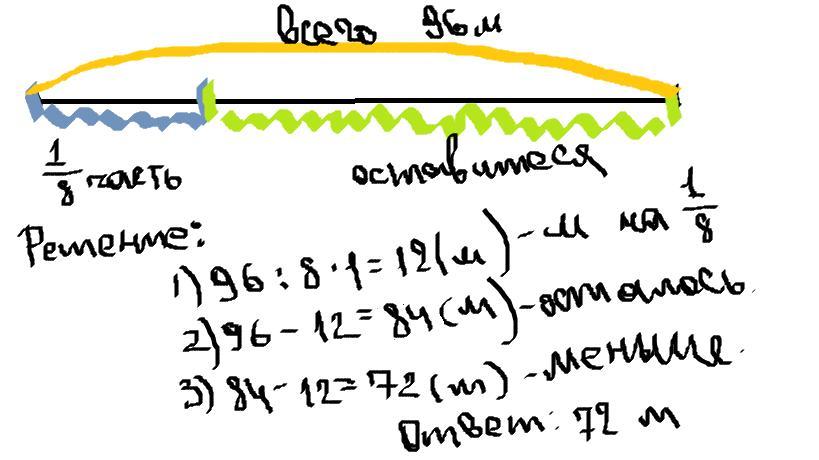 всего 96 м
1/8 часть
оставшееся
Решение:
1) 96 : 8 · 1 = 12 (м) - м на 1/8
2) 96 - 12 = 84 (м) - осталось.
3) 84 - 12 = 72 (м) - меньше.
Ответ: 72 м